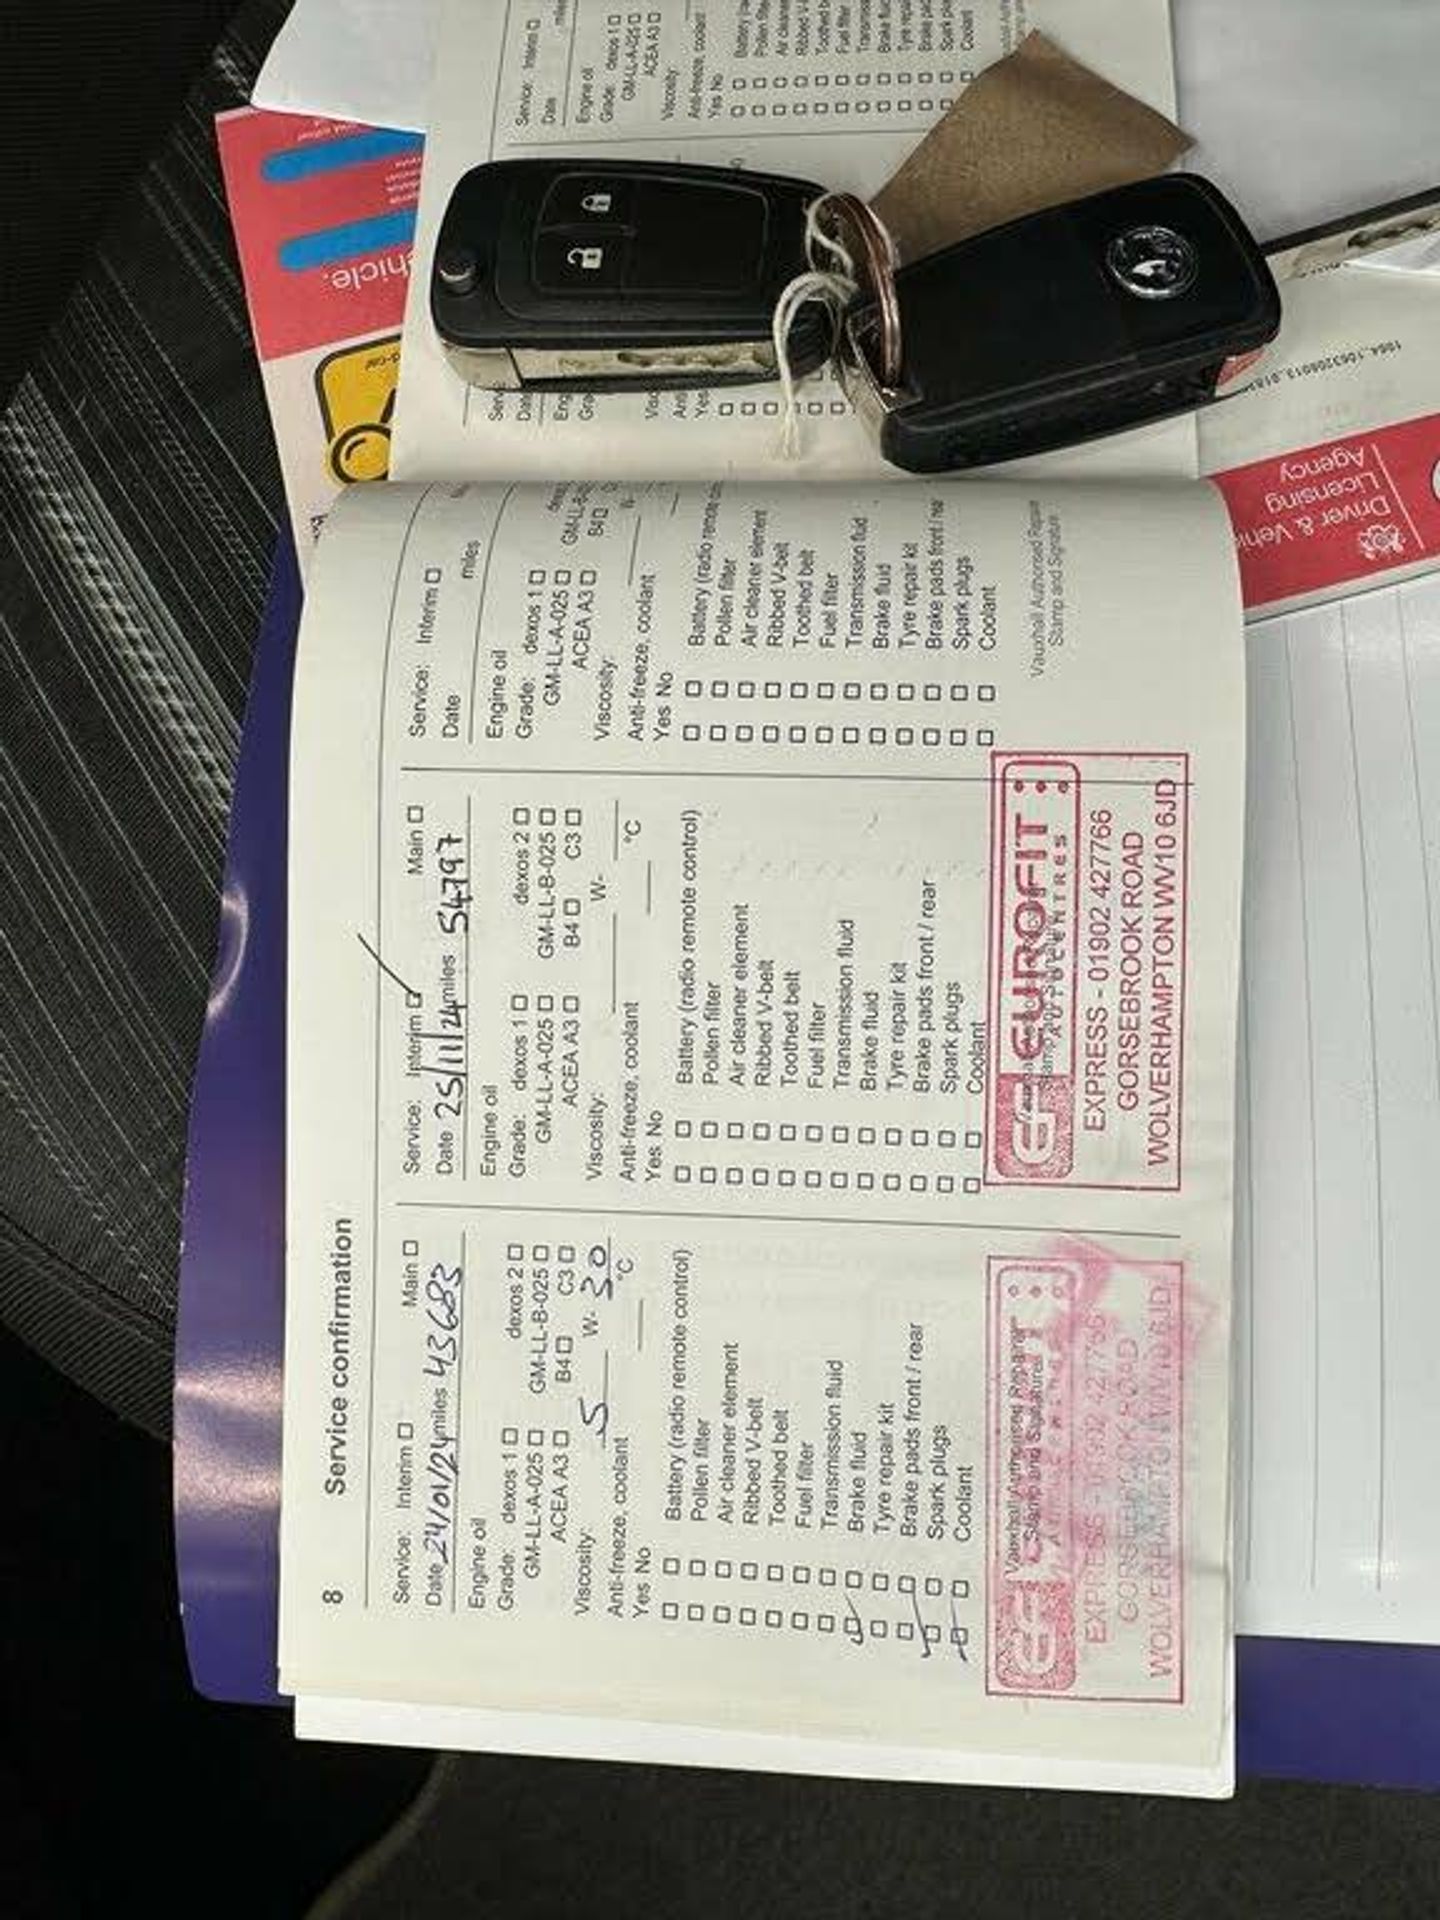 8 Service confirmation
Service: Interim □ Main □
Date 24/01/24 miles 43683
Engine oil
Grade: dexos 1 □ dexos 2 □
GM-LL-A-025 □ GM-LL-B-025 □
ACEA A3 □ B4 □ C3 □
Viscosity: 5 W- 30
Anti-freeze, coolant °C
Yes No
□ □ Battery (radio remote control)
□ □ Pollen filter
□ □ Air cleaner element
□ □ Ribbed V-belt
□ □ Toothed belt
□ □ Fuel filter
□ □ Transmission fluid
□ □ Brake fluid
□ □ Tyre repair kit
□ □ Brake pads front / rear
□ □ Spark plugs
□ □ Coolant
Vauxhall Authorised Repairer
Stamp and Signature
EXPRESS - 01902 427766
GORSEBROOK ROAD
WOLVERHAMPTON WV10 6JD
Service: Interim □ Main □
Date 25/11/24 miles 54797
Engine oil
Grade: dexos 1 □ dexos 2 □
GM-LL-A-025 □ GM-LL-B-025 □
ACEA A3 □ B4 □ C3 □
Viscosity: W-
Anti-freeze, coolant °C
Yes No
□ □ Battery (radio remote control)
□ □ Pollen filter
□ □ Air cleaner element
□ □ Ribbed V-belt
□ □ Toothed belt
□ □ Fuel filter
□ □ Transmission fluid
□ □ Brake fluid
□ □ Tyre repair kit
□ □ Brake pads front / rear
□ □ Spark plugs
□ □ Coolant
EUROFIT
AUTOCENTRES
EXPRESS - 01902 427766
GORSEBROOK ROAD
WOLVERHAMPTON WV10 6JD
Service: Interim □
Date miles
Engine oil
Grade: dexos 1 □
GM-LL-A-025 □
ACEA A3 □ B4 □
Viscosity:
Anti-freeze, coolant
Yes No
□ □ Battery (radio remote
□ □ Pollen filter
□ □ Air cleaner element
□ □ Ribbed V-belt
□ □ Toothed belt
□ □ Fuel filter
□ □ Transmission fluid
□ □ Brake fluid
□ □ Tyre repair kit
□ □ Brake pads front / rear
□ □ Spark plugs
□ □ Coolant
Vauxhall Authorised Repairer
Stamp and Signature
Service: Interim □
Date
Engine oil
Grade: dexos 1 □
GM-LL-A-025 □
ACEA A3 □
Viscosity
Anti-freeze, coolant
Yes No
hicle.
Driver & Vehi
Licensing
Agency